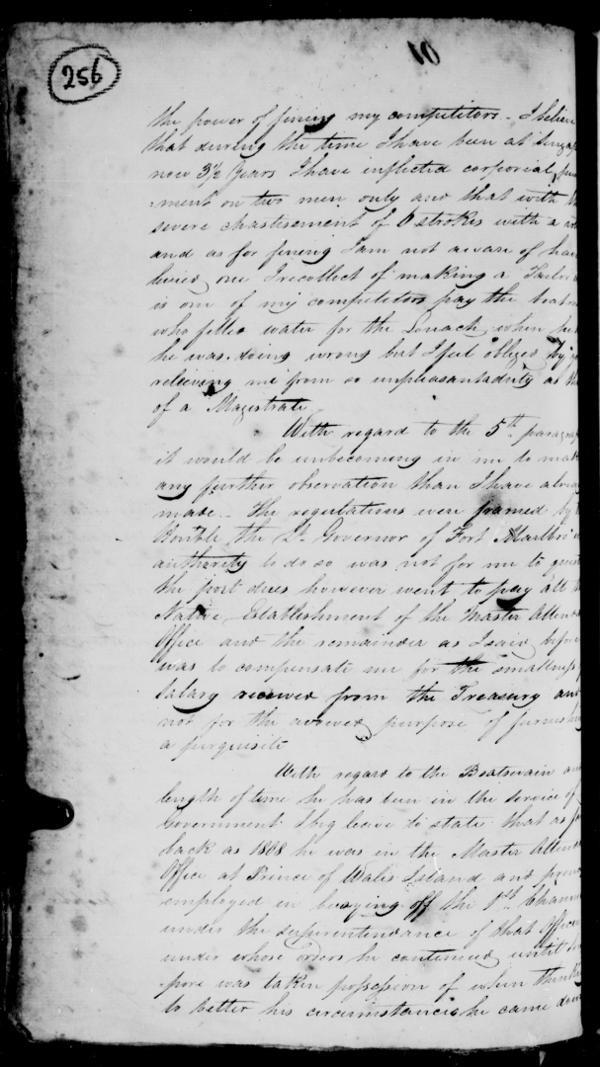 256
10
the power of fining my competitors - I believe
that during the time I have been at
now 3½ Years I have inflicted corporial
ment on two men only and that with
severe chastisement of 6 strokes with a
and as for fining I am not aware of
one I recollect of making a
is one of my competitors pay the
who filled water for the when
he was doing wrong but I feel obliged by
relieving me from so unpleasant a duty as
of a Magistrate
With regard to the 5th
it would be unbecoming in me to
any further observation than I have
made - The regulations were framed by
Honble the Lt Governor of Fort Marlbro
authority to do so was not for me to
the port dues however went to pay all
Native Establishment of the Master
Office and the remainder as I said
was to compensate me for the smallness
Salary received from the Treasury and
not for the avowed purpose of
a perquisite
With regard to the Boatswain
length of time he has been in the service of
Government I beg leave to state that as
back as 1808 he was in the Master
Office at Prince of Wales Island and
employed in buoying off the
under the superentendance of that
under whose orders he continued until
pore was taken possession of when
to better his circumstances he came